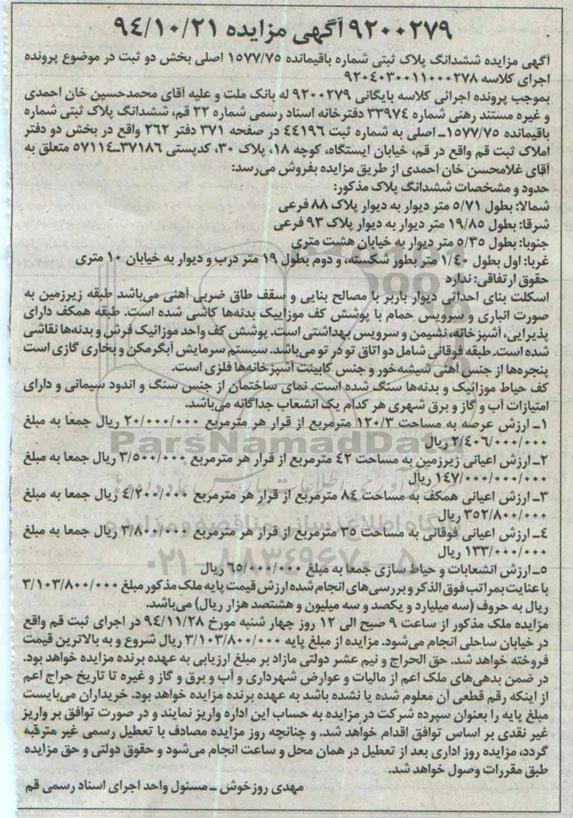 ۹۲۰۰۲۷۹ آگهی مزایده ۹۴/۱۰/۲۱
آگهی مزایده ششدانگ پلاک ثبتی شماره باقیمانده ۱۵۷۷/۷۵ اصلی بخش دو ثبت در موضوع پرونده
اجرای کلاسه ۹۲۰۴۰۳۰۰۱۱۰۰۰۲۷۸
بموجب پرونده اجرائی کلاسه بایگانی ۹۲۰۰۲۷۹ له بانک ملت و علیه آقای محمدحسین خان احمدی
و غیره مستند رهنی شماره ۳۳۹۷۴ دفترخانه اسناد رسمی شماره ۲۲ قم، ششدانگ پلاک ثبتی شماره
باقیمانده ۱۵۷۷/۷۵ـ اصلی به شماره ثبت ۴۴۱۹۶ در صفحه ۳۷۱ دفتر ۲۶۲ واقع در بخش دو دفتر
املاک ثبت قم واقع در قم، خیابان ایستگاه، کوچه ۱۸، پلاک ۳۰، کدپستی ۳۷۱۸۶ـ۵۷۱۱۴ متعلق به
آقای غلامحسن خان احمدی از طریق مزایده بفروش می‌رسد:
حدود و مشخصات ششدانگ پلاک مذکور:
شمالا: بطول ۵/۷۱ متر دیوار به دیوار پلاک ۸۸ فرعی
شرقا: بطول ۱۹/۸۵ متر دیوار به دیوار پلاک ۹۳ فرعی
جنوبا: بطول ۵/۳۵ متر دیوار به خیابان هشت متری
غربا: اول بطول ۱/۴۰ متر بطور شکسته، و دوم بطول ۱۹ متر درب و دیوار به خیابان ۱۰ متری
حقوق ارتفاقی: ندارد
اسکلت بنای احداثی دیوار باربر با مصالح بنایی و سقف طاق ضربی آهنی می‌باشد طبقه زیرزمین به
صورت انباری و سرویس حمام با پوشش کف موزاییک بدنه‌ها کاشی شده است. طبقه همکف دارای
پذیرایی، آشپزخانه، نشیمن و سرویس بهداشتی است. پوشش کف واحد موزائیک فرش و بدنه‌ها نقاشی
شده است. طبقه فوقانی شامل دو اتاق تو در تو می‌باشد. سیستم سرمایش آبگرمکن و بخاری گازی است
پنجره‌ها از جنس آهنی شیشه‌خور و جنس کابینت آشپزخانه‌ها فلزی است.
کف حیاط موزائیک و بدنه‌ها سنگ شده است. نمای ساختمان از جنس سنگ و اندود سیمانی و دارای
امتیازات آب و گاز و برق شهری هر کدام یک انشعاب جداگانه می‌باشد.
۱ـ ارزش عرصه به مساحت ۱۲۰/۳ مترمربع از قرار هر مترمربع ۲۰/۰۰۰/۰۰۰ ریال جمعا به مبلغ
۲/۴۰۶/۰۰۰/۰۰۰ ریال
۲ـ ارزش اعیانی زیرزمین به مساحت ۴۲ مترمربع از قرار هر مترمربع ۳/۵۰۰/۰۰۰ ریال جمعا به مبلغ
۱۴۷/۰۰۰/۰۰۰/۰۰۰ ریال
۳ـ ارزش اعیانی همکف به مساحت ۸۴ مترمربع از قرار هر مترمربع ۴/۲۰۰/۰۰۰ ریال جمعا به مبلغ
۳۵۲/۸۰۰/۰۰۰ ریال
۴ـ ارزش اعیانی فوقانی به مساحت ۳۵ مترمربع از قرار هر مترمربع ۳/۸۰۰/۰۰۰ ریال جمعا به مبلغ
۱۳۳/۰۰۰/۰۰۰ ریال
۵ـ ارزش انشعابات و حیاط سازی جمعا به مبلغ ۶۵/۰۰۰/۰۰۰ ریال
با عنایت بمراتب فوق الذکر و بررسی‌های انجام شده ارزش قیمت پایه ملک مذکور مبلغ ۳/۱۰۳/۸۰۰/۰۰۰
ریال به حروف (سه میلیارد و یکصد و سه میلیون و هشتصد هزار ریال) می‌باشد.
مزایده ملک مذکور از ساعت ۹ صبح الی ۱۲ روز چهار شنبه مورخ ۹۴/۱۱/۲۸ در اجرای ثبت قم واقع
در خیابان ساحلی انجام می‌شود. مزایده از مبلغ پایه ۳/۱۰۳/۸۰۰/۰۰۰ ریال شروع و به بالاترین قیمت
فروخته خواهد شد. حق الحراج و نیم عشر دولتی مازاد بر مبلغ ارزیابی به عهده برنده مزایده خواهد بود.
در ضمن بدهی‌های ملک اعم از مالیات و عوارض شهرداری و آب و برق و گاز و غیره تا تاریخ حراج اعم
از اینکه رقم قطعی آن معلوم شده یا نشده باشد به عهده برنده مزایده خواهد بود. خریداران می‌بایست
مبلغ پایه را بعنوان سپرده شرکت در مزایده به حساب این اداره واریز نمایند و در صورت توافق بر واریز
غیر نقدی بر اساس توافق اقدام خواهد شد. و چنانچه روز مزایده مصادف با تعطیل رسمی غیر مترقبه
گردد، مزایده روز اداری بعد از تعطیل در همان محل و ساعت انجام می‌شود و حقوق دولتی و حق مزایده
طبق مقررات وصول خواهد شد.
مهدی روزخوش ـ مسئول واحد اجرای اسناد رسمی قم
ParsNamadData
۰۲۱ـ۸۸۳۴۹۶۷۰ـ۵